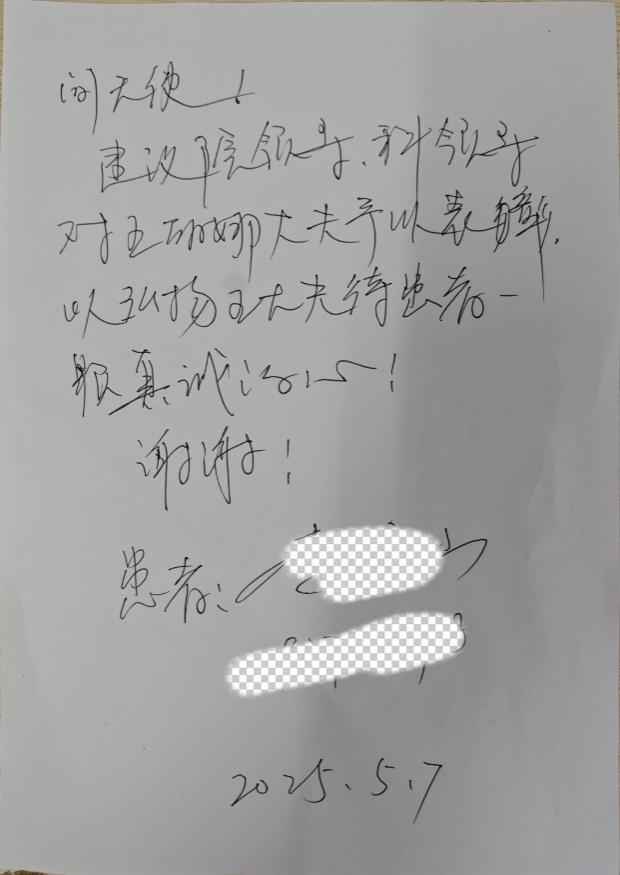 的天使!
建议院领导、科领导
对王娜大夫予以表彰,
以弘扬王大夫待患者一
般真诚的心!
谢谢!
患者:
2025.5.7